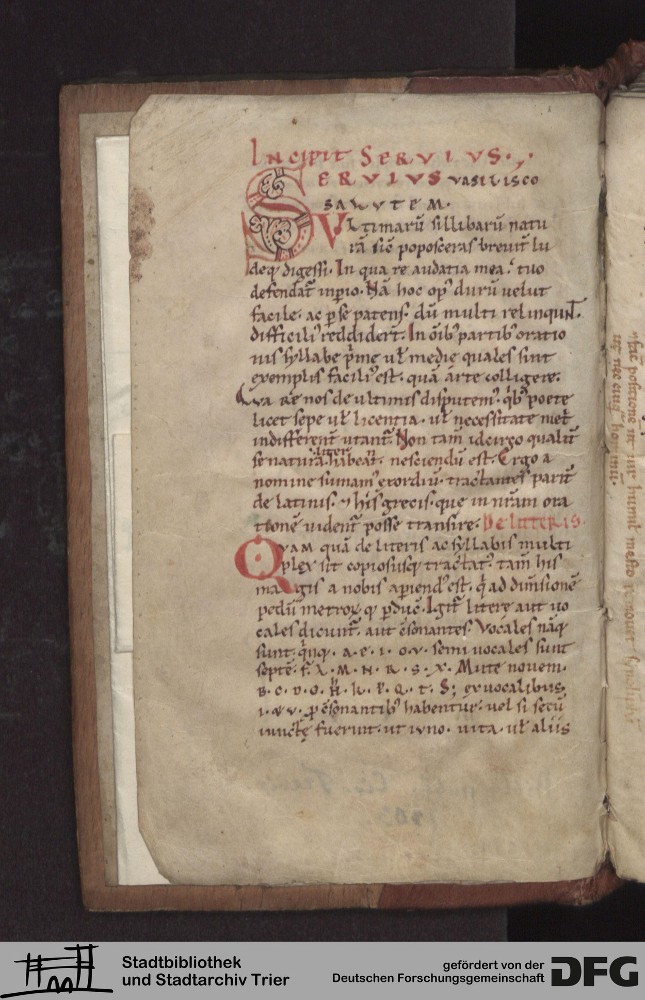 Incipit Servius.
SERVIUS vasilisco
salutem.
Vltimarū sillibarū natu
rā sic̄ poposceras breuit̄ lu
deq; digessi. In qua re audatia mea. tuo
defendat̄ inp̄io. Nā hoc op' durū uelut
facile. ac p̄ se patens. dū multi relinqun̄t.
difficili' reddidert̄. In oīb' partib' oratio
nis syllabe p̄me ul̄ medie quales sint
exemplis facili' est. quā arte colligere.
Qua re nos de ultimis disputem'. q̄b' poete
licet sepe ul̄ licentia. ul̄ necessitate met̄
indifferent̄ utant̄. Non tam̄ idcirco qualit̄
se natura liter habeāt. nesciendū est. Ergo a
nomine sumam' exordiū. tractantes parit̄
de latinis. & his grecis. que in nr̄am ora
tionē uident̄ posse transire. De litteris.
Qvam quā de literis ac syllabis multi
plex sit copiosusq; tractat'. tam̄ his
magis a nobis aþiend' est. q̄ ad dim̄sionē
pedū metroꝝ q; p̄duc̄. Igit̄ litere aut uo
cales dicunt̄. aut c̄sonantes. Vocales nāq;
sunt. q̄nq;. a. e. i. o. v. semi uocales sunt
septē. f. L. M. N. R. S. X. Mute nouem.
B. C. D. G. H. K. P. Q. T. S; ex uocalibus
i. & v. p̄ c̄sonantib' habentur. uel si secū
iunctę fuerint. ut iuno. uita. ul̄ aliis
Stadtbibliothek
und Stadtarchiv Trier
gefördert von der
Deutschen Forschungsgemeinschaft
DFG